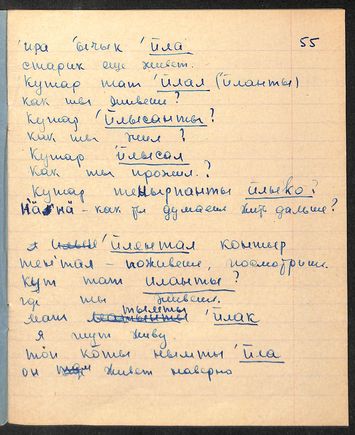 55
'ира 'ычык 'йла
старик еще живет.
Кутар тат 'йлал (йланты)
как ты живешь?
Кутар 'йлысанты?
как ты жил?
Кутар йлысал
как ты прожил?
Кутар тенырпанты йлыко?
как ты думаешь жить дальше?
'йлентал контыр
тентал – поживешь, посмотришь.
Кут тат иланты?
где ты живешь.
мат тымты 'йлак
я тут живу
кōты нымты 'йла
он живет наверно